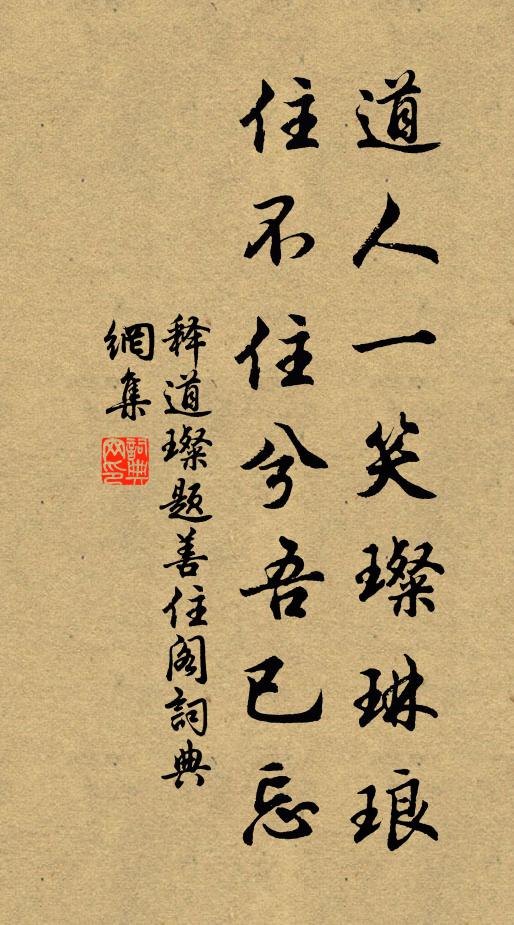 道人一笑璨琳琅
住不住兮吾已忘
释道璨题善住阁詞典
網集
詞典網印